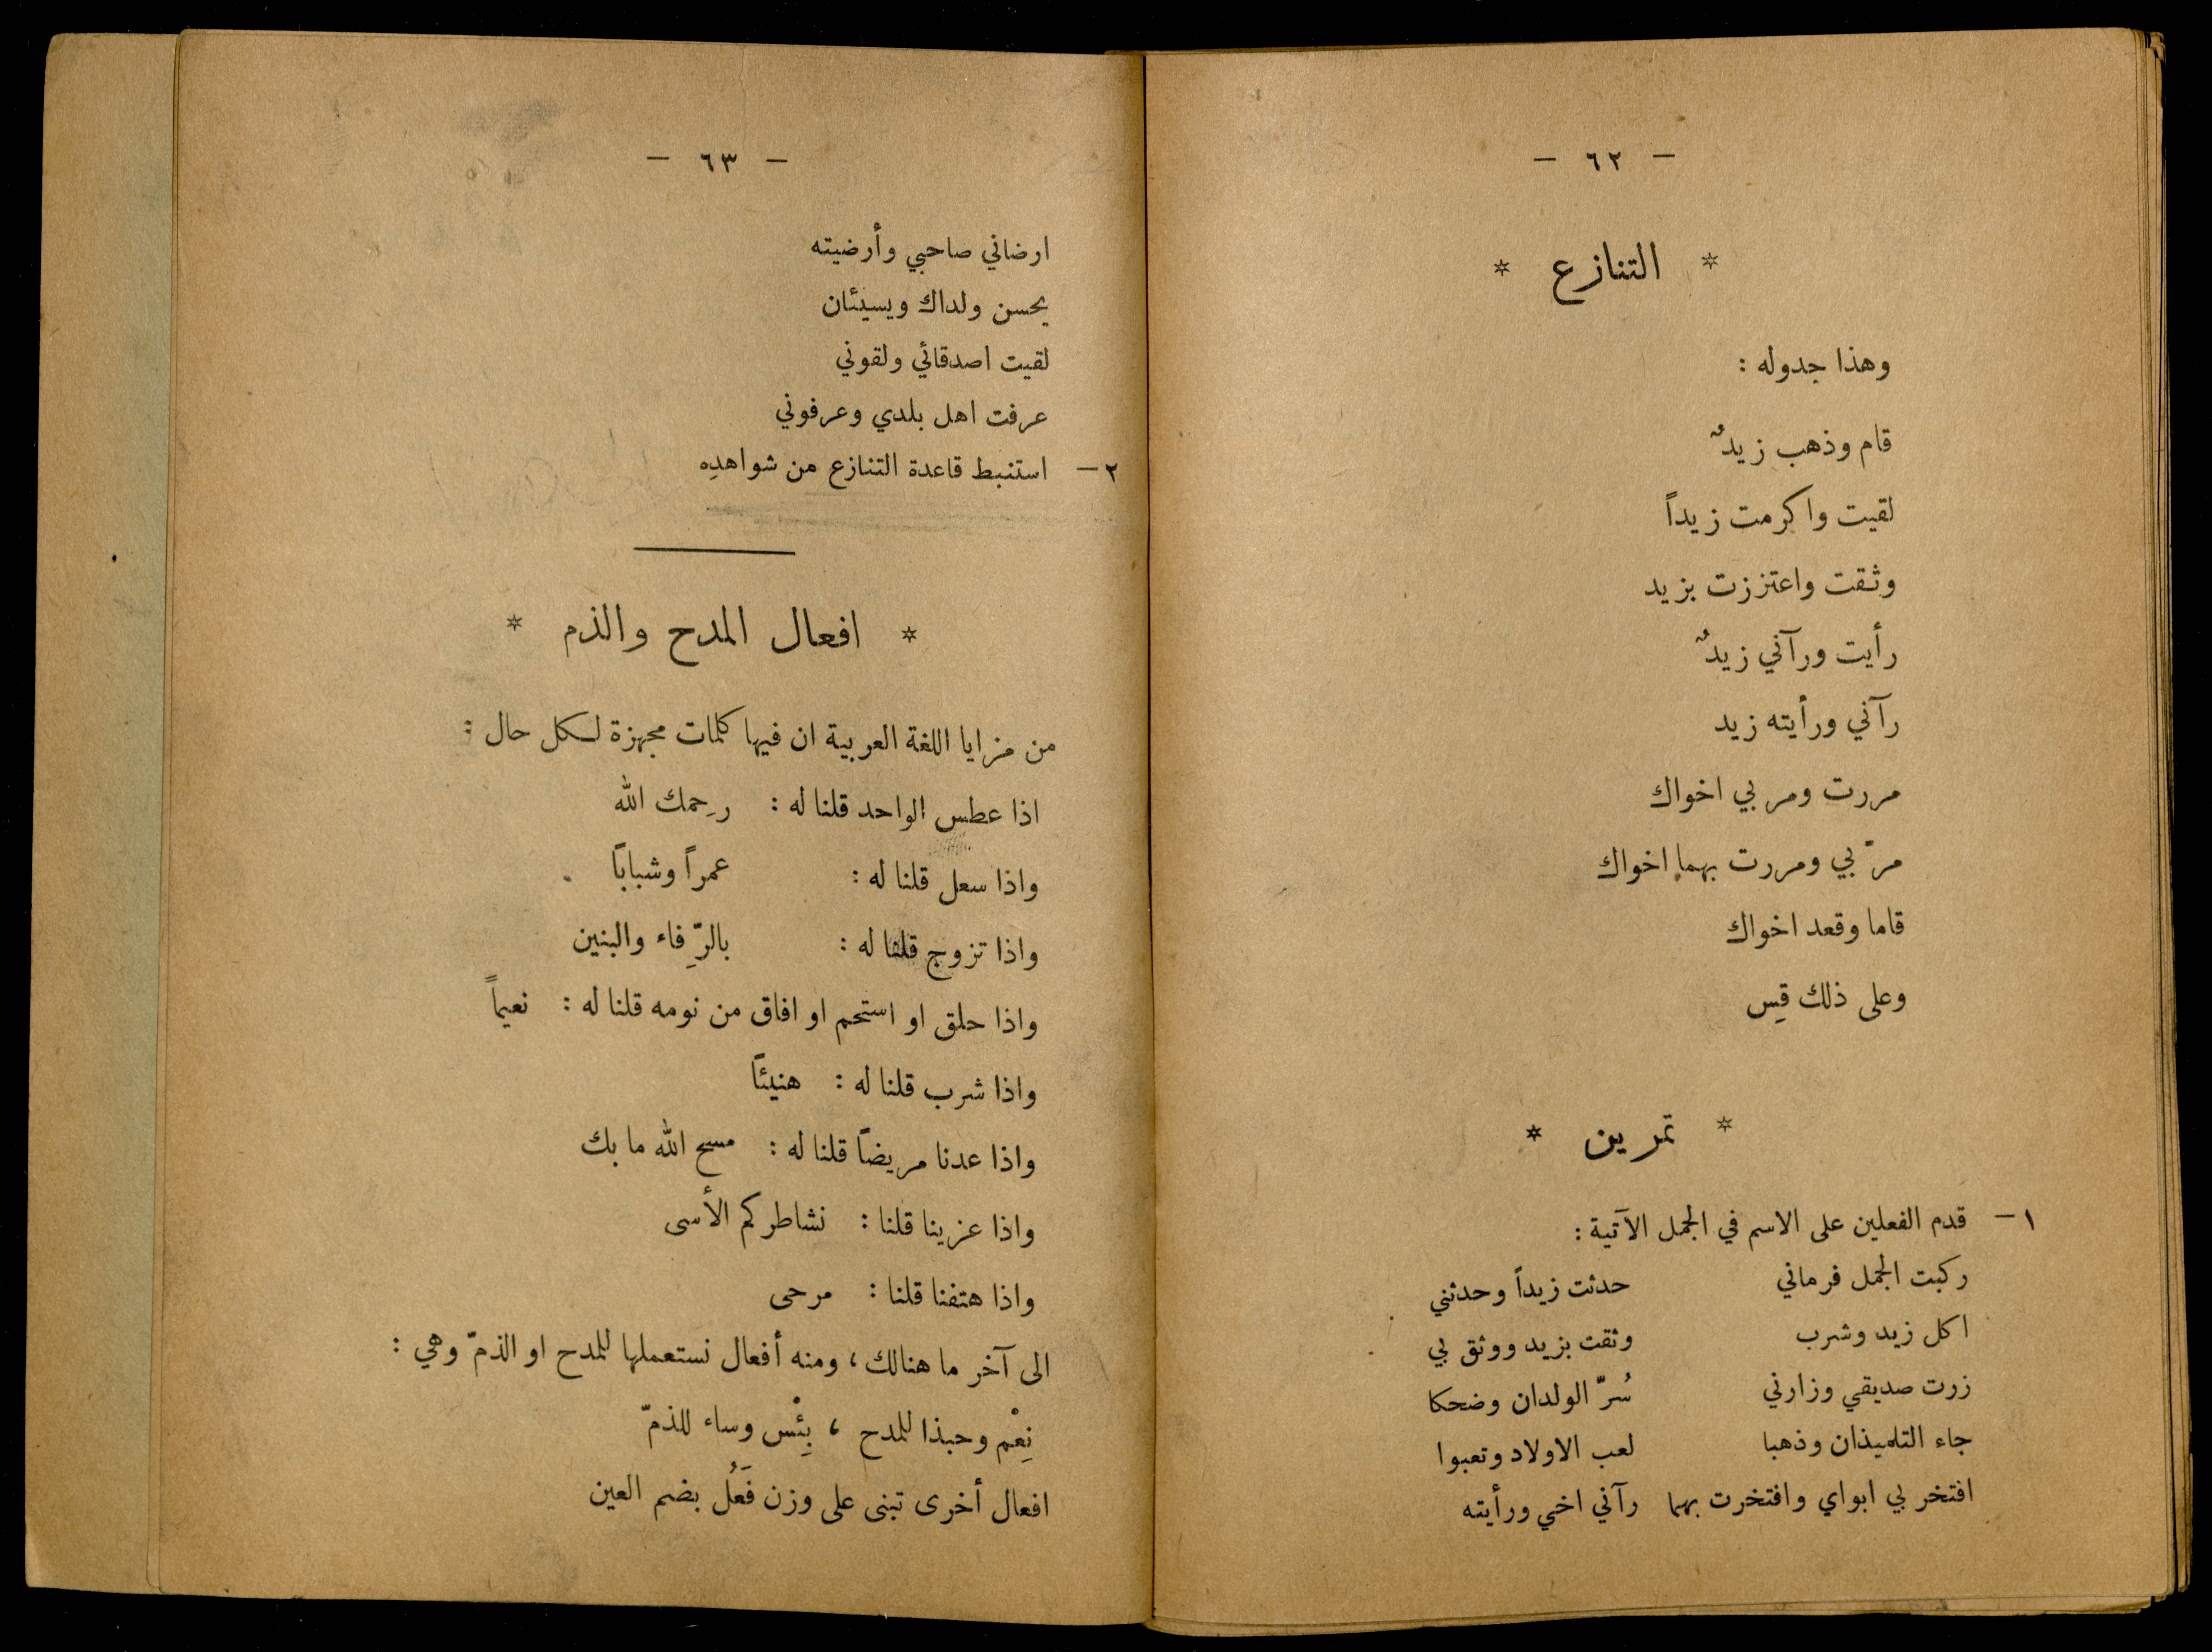 — ٦٢ —
* التنازع *
وهذا جدوله :
قام وذهب زيدٌ
لقيت واكرمت زيداً
وثقت واعتززت بزيد
رأيت ورآني زيدٌ
رآني ورأيته زيد
مررت ومر بي اخواك
مرّ بي ومررت بهما اخواك
قاما وقعد اخواك
وعلى ذلك قِس
* تمرين *
١ — قدم الفعلين على الاسم في الجمل الآتية :
ركبت الجمل فرماني حدثت زيداً وحدثني
اكل زيد وشرب وثقت بزيد ووثق بي
زرت صديقي وزارني سُرّ الولدان وضحكا
جاء التلميذان وذهبا لعب الاولاد وتعبوا
افتخر بي ابواي وافتخرت بهما رآني اخي ورأيته
— ٦٣ —
ارضاني صاحبي وأرضيته
يحسن ولداك ويسيئان
لقيت اصدقائي ولقوني
عرفت اهل بلدي وعرفوني
٢ — استنبط قاعدة التنازع من شواهدِه
* افعال المدح والذم *
من مزايا اللغة العربية ان فيها كلمات مجهزة لكل حال :
اذا عطس الواحد قلنا له : رحِمك الله
واذا سعل قلنا له : عمراً وشباباً
واذا تزوج قلنا له : بالرِّفاء والبنين
واذا حلق او استحم او افاق من نومه قلنا له : نعيماً
واذا شرب قلنا له : هنيئاً
واذا عدنا مريضاً قلنا له : مسح الله ما بك
واذا عزينا قلنا : نشاطركم الأسى
واذا هتفنا قلنا : مرحى
الى آخر ما هنالك ، ومنه أفعال نستعملها للمدح او الذمّ وهي :
نِعْم وحبذا للمدح ، بِئْس وساء للذمّ
افعال أخرى تبنى على وزن فَعُل بضم العين